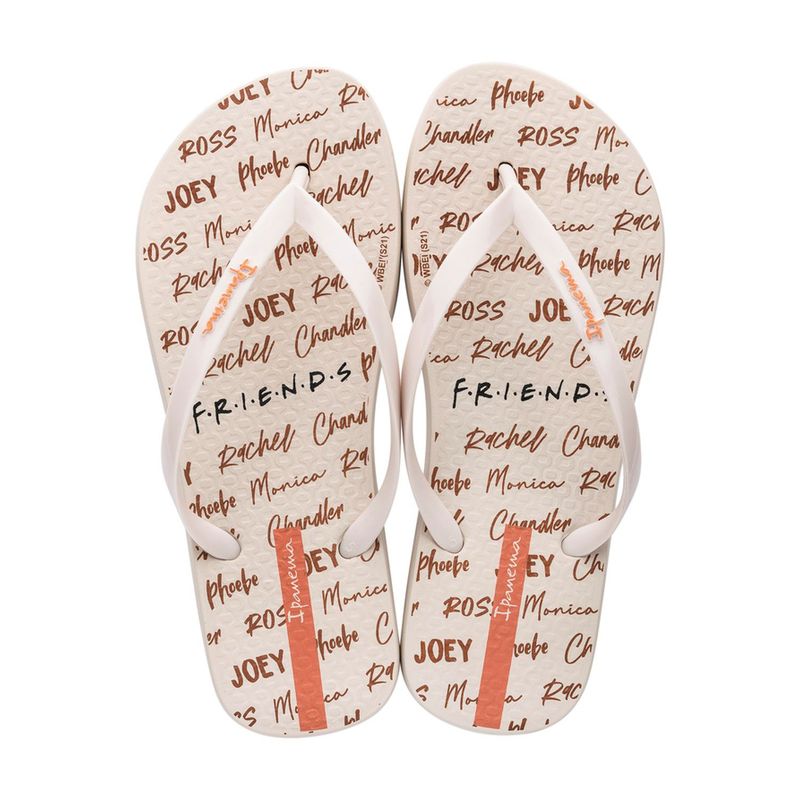 JOEY Rachel
ROSS Monica
JOEY Phoebe Chandler
ROSS Monica Rachel
Rachel Phoebe
JOEY Rachel
ROSS Chandler
Rachel Phoebe
F·R·I·E·N·D·S
Rachel Chand
Phoebe Monica
Chandler
Phoebe JOEY
ROSS Monica
JOEY Phoebe
Rachel
Monica
Ipanema
Ipanema
© WBEI (S21)
Monica Phoebe
Chandler ROSS Monica
Rachel JOEY Phoebe
Monica Rachel
Rachel Phoebe
JOEY
Monica ROSS Chandler
Rachel Phoebe
F·R·I·E·N·D·S
Rachel Chand
Phoebe Monica
Chandler
Phoebe JOEY
ROSS Monica
JOEY
Rachel
Ipanema
Ipanema
© WBEI (S21)